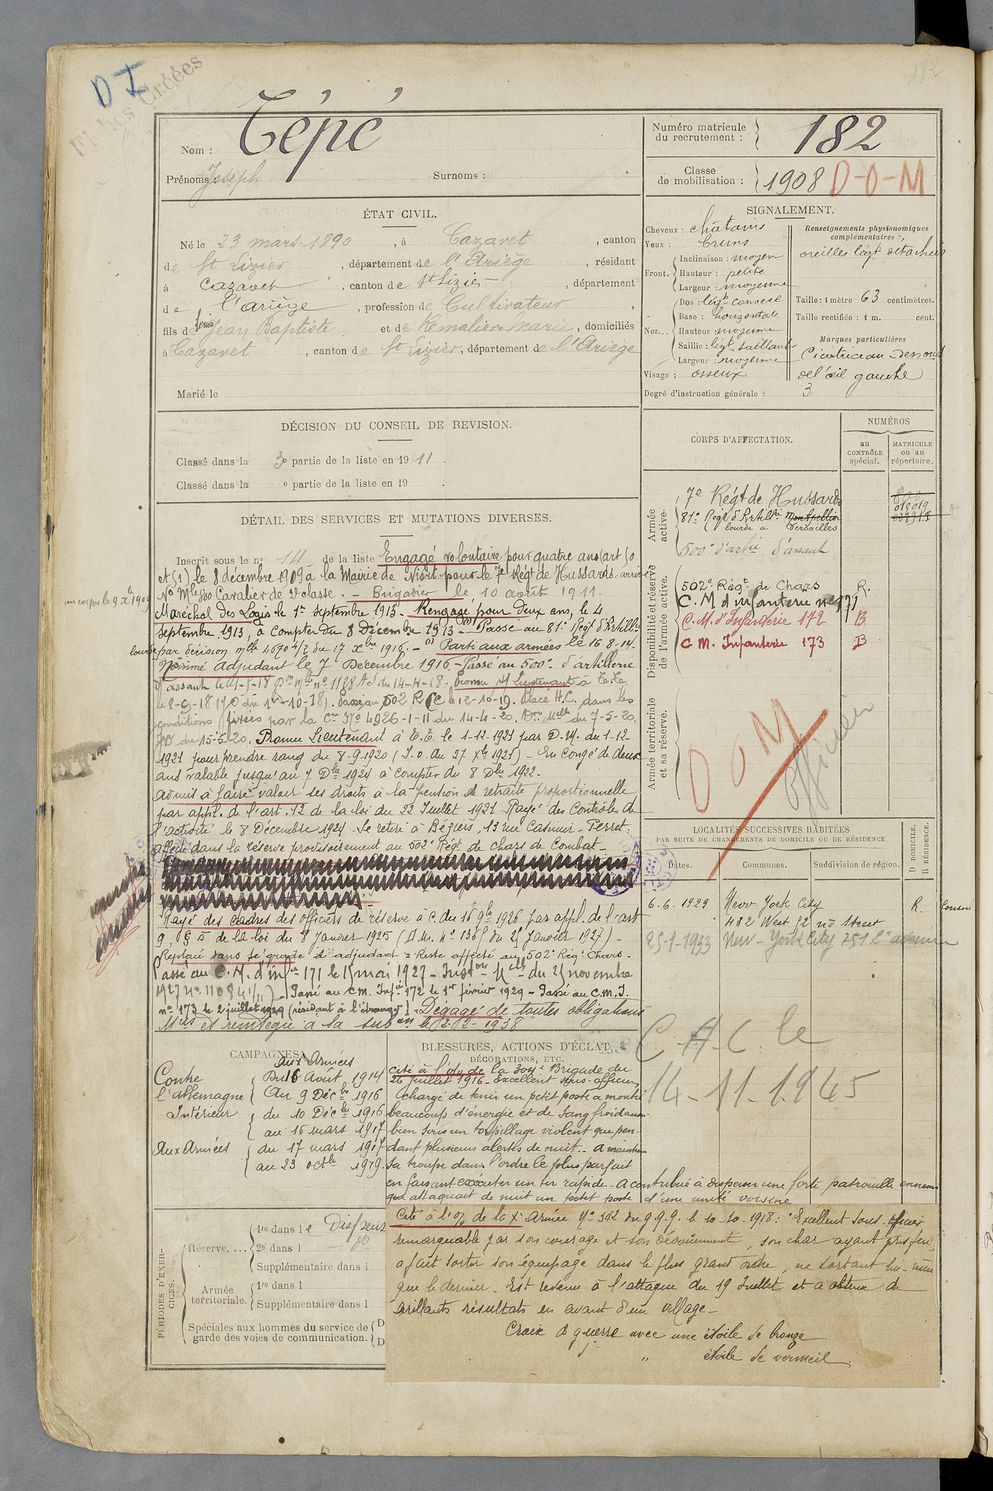 D I
Fiches Créées
182
Nom : Tépé
Prénoms : Joseph Surnoms :
Numéro matricule du recrutement : 182
Classe de mobilisation : 1908 D-O-M
ÉTAT CIVIL.
Né le 23 mars 1890, à Cazavet, canton
de St Lizier, département de l'Ariège, résidant
à Cazavet, canton de St Lizier, département
de l'Ariège, profession de Cultivateur,
fils de Jean Baptiste et de Marie, domiciliés
à Cazavet, canton de St Lizier, département de l'Ariège
Marié le
SIGNALEMENT.
Cheveux : châtains
Yeux : bruns
Front. Inclinaison : moyen
Hauteur : petite
Largeur : moyenne
Nez... Dos : légt convexe
Base : horizontale
Hauteur moyenne
Saillie : légt saillant
Largeur : moyenne
Visage : osseux
Renseignements physionomiques complémentaires :
oreilles légt détachées
Taille : 1 mètre 63 centimètres.
Taille rectifiée : 1 m. cent.
Marques particulières
Cicatrice au dessous
de l'œil gauche
Degré d'instruction générale : 3
DÉCISION DU CONSEIL DE REVISION.
Classé dans la 3e partie de la liste en 1911.
Classé dans la e partie de la liste en 19 .
DÉTAIL DES SERVICES ET MUTATIONS DIVERSES.
Inscrit sous le no 14 de la liste Engagé volontaire pour quatre ans (art 50
et 51) le 8 décembre 1909 à la Mairie de Niort pour le 7e Régt de Hussards. arrivé
au corps le 9 Xbre 1909
No Mle Cavalier de 2e classe. - Brigadier le 10 août 1911.
Maréchal des Logis le 1er septembre 1913. Rengagé pour deux ans, le 4
septembre 1913, à compter du 8 Décembre 1913. Passé au 81e Régt d'Artillie
lourde par décision mlle 4070 2/3 du 17 Xbre 1916. - Parti aux armées le 16.8.14.
Nommé Adjudant le 7 Décembre 1916 - Passé au 500e d'artillerie
d'assaut le 1-5-18 Don Mlle no 1158 du 14-4-18. Promu S/Lieutenant à T.T.
le 8-9-18 (J.O du 1er-10-18). Passé au 502 R.C.C le 12-10-19. Placé H.C. dans les
conditions fixées par la Cre No 4926-1-11 du 14-4-20. Don Mlle du 7-5-20.
JO du 15-5-20. Promu Lieutenant à T.T. le 1-12-1921 par D.M. du 1-12-
1921 pour prendre rang du 8-9-1920 (J.O. du 27 Xbre 1921) - En Congé de deux
ans valable jusqu'au 7 Dbre 1924 à compter du 8 Dbre 1922 -
Admis à faire valoir ses droits à la pension de retraite proportionnelle
par appl. de l'art. 12 de la loi du 22 Juillet 1921 - Rayé des Contrôles de
l'activité le 8 Décembre 1924. Se retire à Béziers, 13 rue Casimir-Perret.
affecté dans la réserve provisoirement au 502e Régt de Chars de Combat -
Rayé des cadres des officiers de réserve à c. du 16 9bre 1926 par appl. de l'art
9, § 5 de la loi du 8 Janvier 1925 (D.M. no 1365 du 25 Janvier 1927) -
Replacé dans le grade d'adjudant - Reste affecté au 502e Régt Chars -
Passé au C.M. d'infie 171 le 15 mai 1927 - Inston Mlle du 25 novembre
1927 no 11084 1/11) - Passé au C.M. Infie 172 le 1er février 1929 - Passé au C.M.I.
no 173 le 2 juillet 1929 (résidant à l'étranger) - Dégagé de toutes obligations
Mres et réintégré à la subon le 12-12-1938
CORPS D'AFFECTATION.
NUMÉROS
au CONTRÔLE spécial.
MATRICULE ou au répertoire.
Armée active.
7e Régt de Hussards
81e Régt d'Artillie Montpellier
lourde à Versailles
500e d'artie d'assaut
Disponibilité et réserve de l'armée active.
502e Régt de Chars R.
C.M d'infanterie no 171
C.M. d'Infanterie 172 B
C M. Infanterie 173 B
Armée territoriale et sa réserve.
D O M
officier
LOCALITÉS SUCCESSIVES HABITÉES
PAR SUITE DE CHANGEMENTS DE DOMICILE OU DE RÉSIDENCE
Dates. Communes. Subdivision de région. D DOMICILE. R RÉSIDENCE.
6.6.1929 New York City R. Consul
432 West 52 nd Street
25-1-1933 New-York City 751 2e avenue
C.A.C. le
14-11-1945
CAMPAGNES.
Contre l'allemagne
Aux Armées
Du 16 Août 1914
au 9 Décbre 1916
Intérieur
du 10 Décbre 1916
au 16 mars 1917
Aux Armées
du 17 mars 1917
au 23 octbre 1919
BLESSURES, ACTIONS D'ÉCLAT, DÉCORATIONS, ETC.
Cité à l'o/ de la Brigade du
26 juillet 1916 - Excellent sous-officier,
chargé de tenir un petit poste a montré
beaucoup d'énergie et de sang froid
bien sous un torpillage violent que pen-
dant plusieurs alertes de nuit. - a maintenu
sa troupe dans l'ordre le plus parfait
en faisant exécuter un tir rapide - A contribué à disperser une forte patrouille ennemie
qui attaquait de nuit un petit poste d'une unité voisine
Cité à l'o/ de la Xe Armée No 362 du G.Q.G. le 10-10-1918 : "Excellent sous-officier
remarquable par son courage et son dévouement, son char ayant pris feu,
a fait sortir son équipage dans le plus grand ordre, ne sortant lui-même
que le dernier. Est revenu à l'attaque du 19 Juillet et a obtenu de
brillants résultats en avant d'un village -
Croix de guerre avec une étoile de bronze
" étoile de vermeil.
PÉRIODES D'EXERCICES.
Réserve....
1re dans le Dispensé
2e dans l do
Supplémentaire dans l
Armée territoriale.
1re dans l
Supplémentaire dans l
Spéciales aux hommes du service de garde des voies de communication.